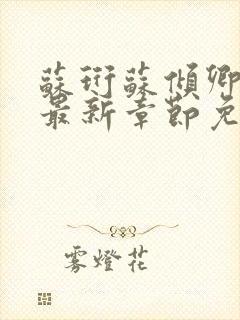 蘇珩蘇傾卿
最新章節免
雾燈花